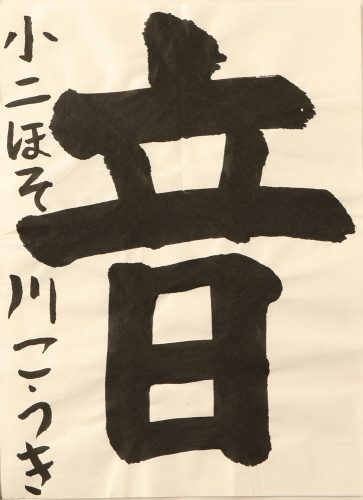 音
小二ほそ川こうき